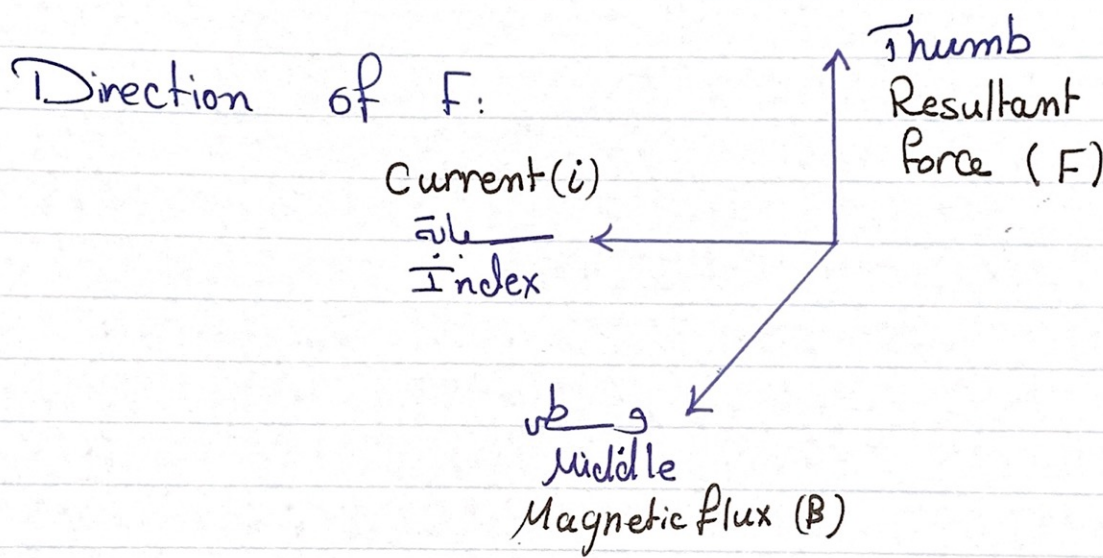 Direction of F:
Thumb
Resultant
force (F)
Current (i)
سبابة
Index
وسطى
Middle
Magnetic flux (B)